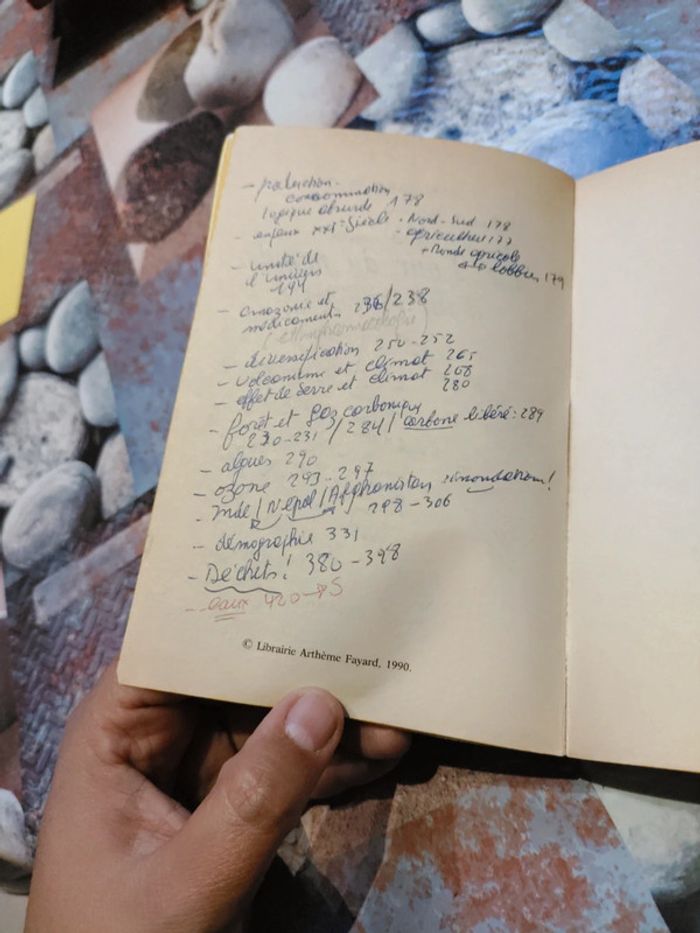 - production-
consommation
logique absurde 178
- enjeux XXIe Siècle • Nord-Sud 178
- agriculture 177
+ Monde agricole
lobbies 179
- unité de
l'univers
194
- amazonie et
médicaments 236/238
(ethnopharmacologie)
- diversification 250-252
- volcanisme et climat 265
- effet de serre et climat 268
280
- forêt et gaz carbonique
230-231 / 284 / carbone libéré: 289
- algues 290
- ozone 293-297
- Inde / Népal / Afghanistan inondations!
298-306
- démographie 331
- Déchets! 380-398
- eaux 420→S
© Librairie Arthème Fayard, 1990.